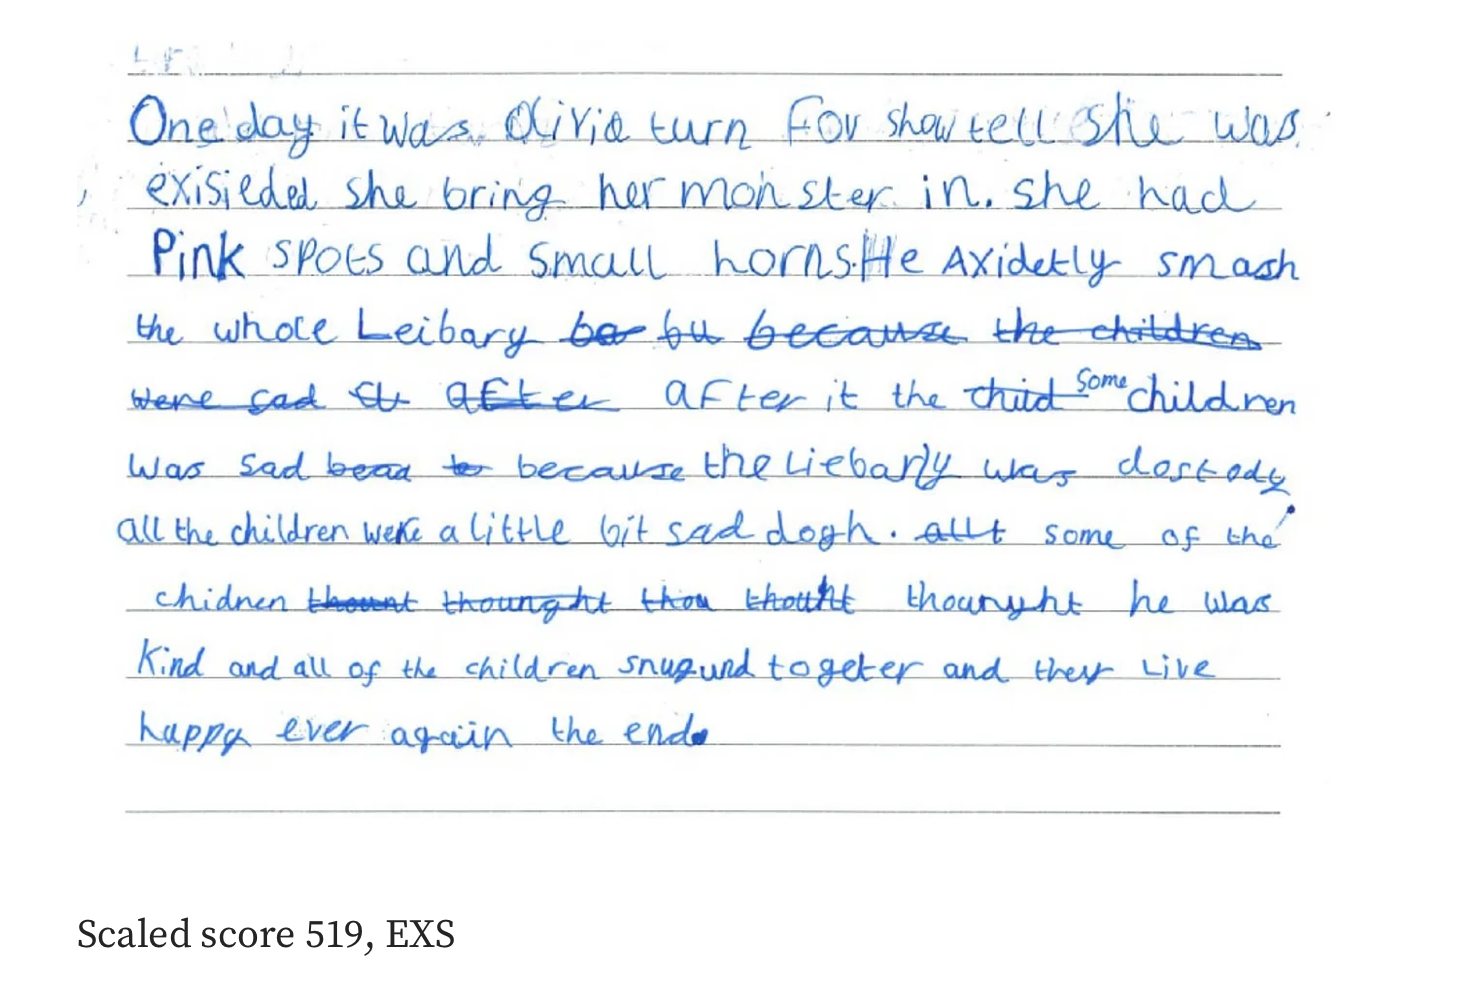 One day it was Olivia turn For show tell She was
exisieded she bring her monster in. she had
Pink spots and small horns. He Axidetly smash
the whole Leibary ba bu because the children
were sad after after it the child some children
was sad beaa to because the Liebarly was dostody
all the children were a little bit sad dogh. allt some of the
chidnen thount thounght thou thouht thounght he was
Kind and all of the children snugund togeter and they Live
happy ever again the end.
Scaled score 519, EXS